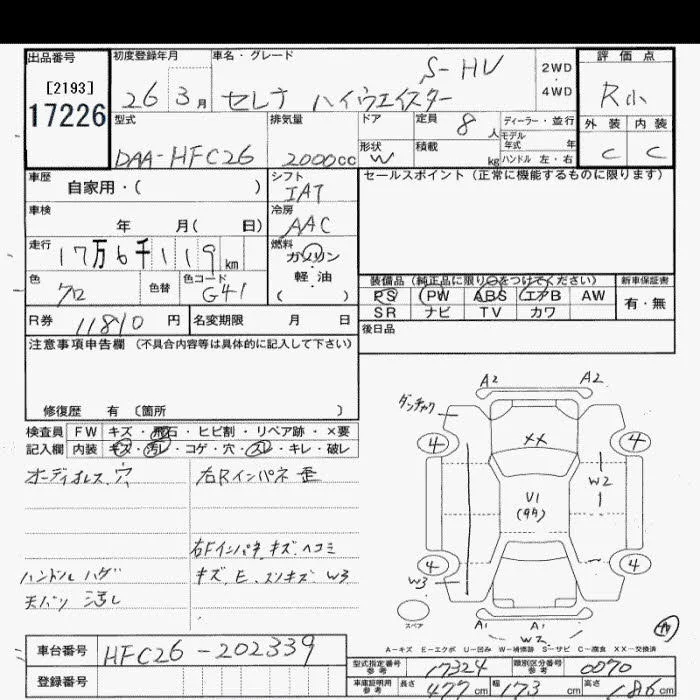 出品番号 初度登録年月 車名・グレード 評価点
[2193]
17226
26 3月 セレナ ハイウエイスター S-HV 2WD・4WD R小
型式 排気量 ドア 定員 8人 ディーラー・並行 外装 内装
DAA-HFC26 2000cc 形状 W 積載 kg モデル年式 年 ハンドル 左・右 C C
車歴 自家用・( ) シフト IAT セールスポイント (正常に機能するものに限ります)
車検 年 月( 日) 冷房 AAC
走行 17万6千119km 燃料 ガソリン 軽・油 ( )
色 クロ 色替 色コード G41
装備品(純正品に限り○をつけてください) 新車保証書
PS PW ABS エアB AW 有・無
SR ナビ TV カワ
R券 11810円 名変期限 月 日 後日品
注意事項申告欄 (不具合内容等は具体的に記入して下さい)
修復歴 有 〔箇所 〕
検査員 FW キズ・飛石・ヒビ割・リペア跡・×要
記入欄 内装 キズ・汚レ・コゲ・穴・スレ・キレ・破レ
オーディオレス 穴 右Rインパネ 歪
右Fインパネ キズ ヘコミ
ハンドル ハゲ キズ、E、スリキズ W3
天バリ 汚レ
A2 A2
4 4
XX
W2
U1
4 4
W3
スペア
A1 A1
W2
A-キズ E-エクボ U-凹み W-補修跡 S-サビ C-腐食 XX-交換済
車台番号 HFC26-202339
登録番号
型式指定番号参考 17324 類別区分番号参考 0070
車庫証明用参考 長さ 477cm 幅 173cm 高さ 186cm